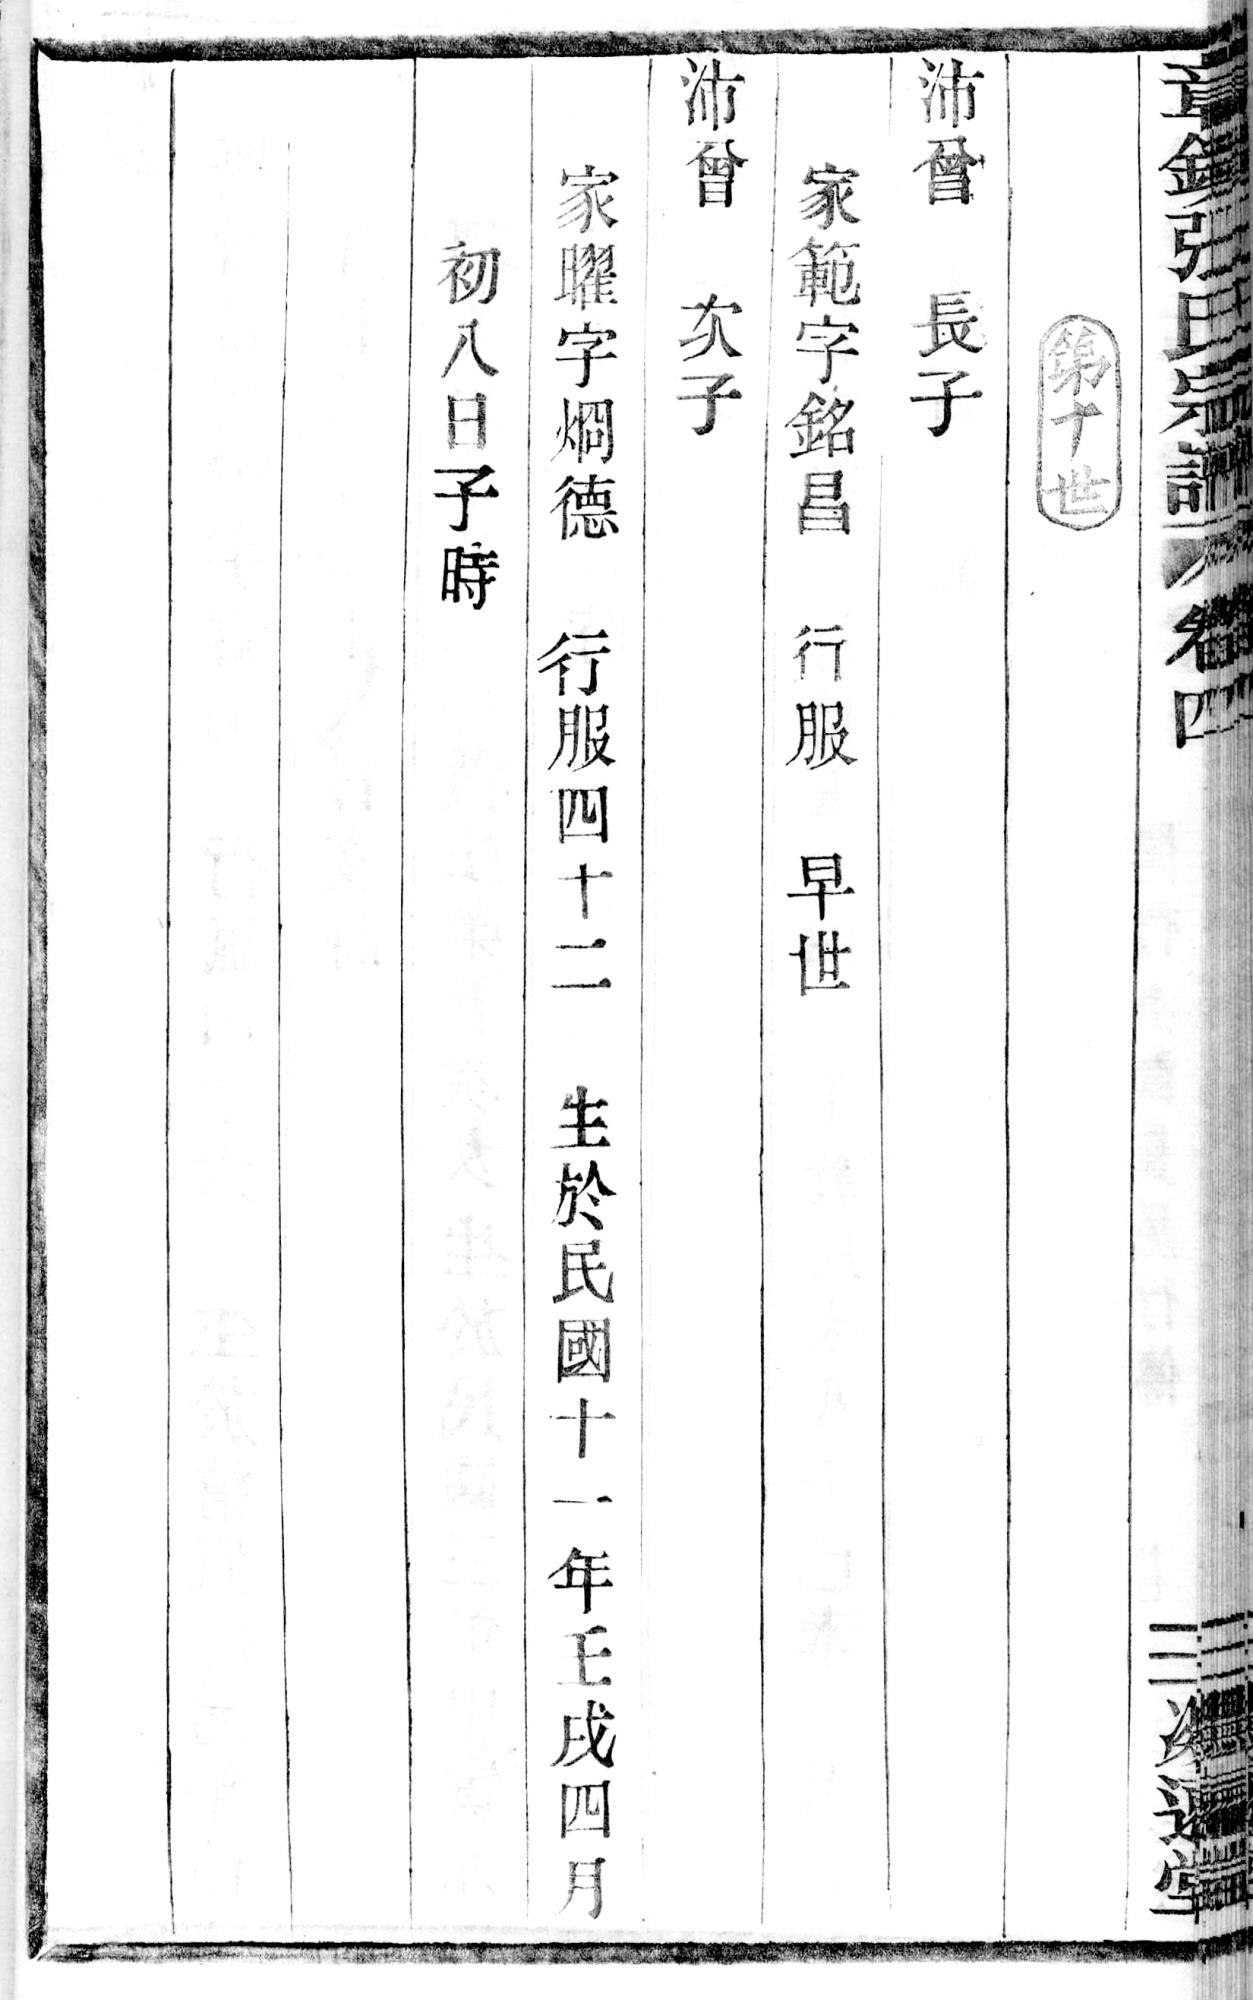 張氏宗譜 卷四 三
第十世
沛曾 長子
家範字銘昌 行服 早世
沛曾 次子
家曜字烱德 行服四十二 生於民國十一年壬戌四月
初八日子時